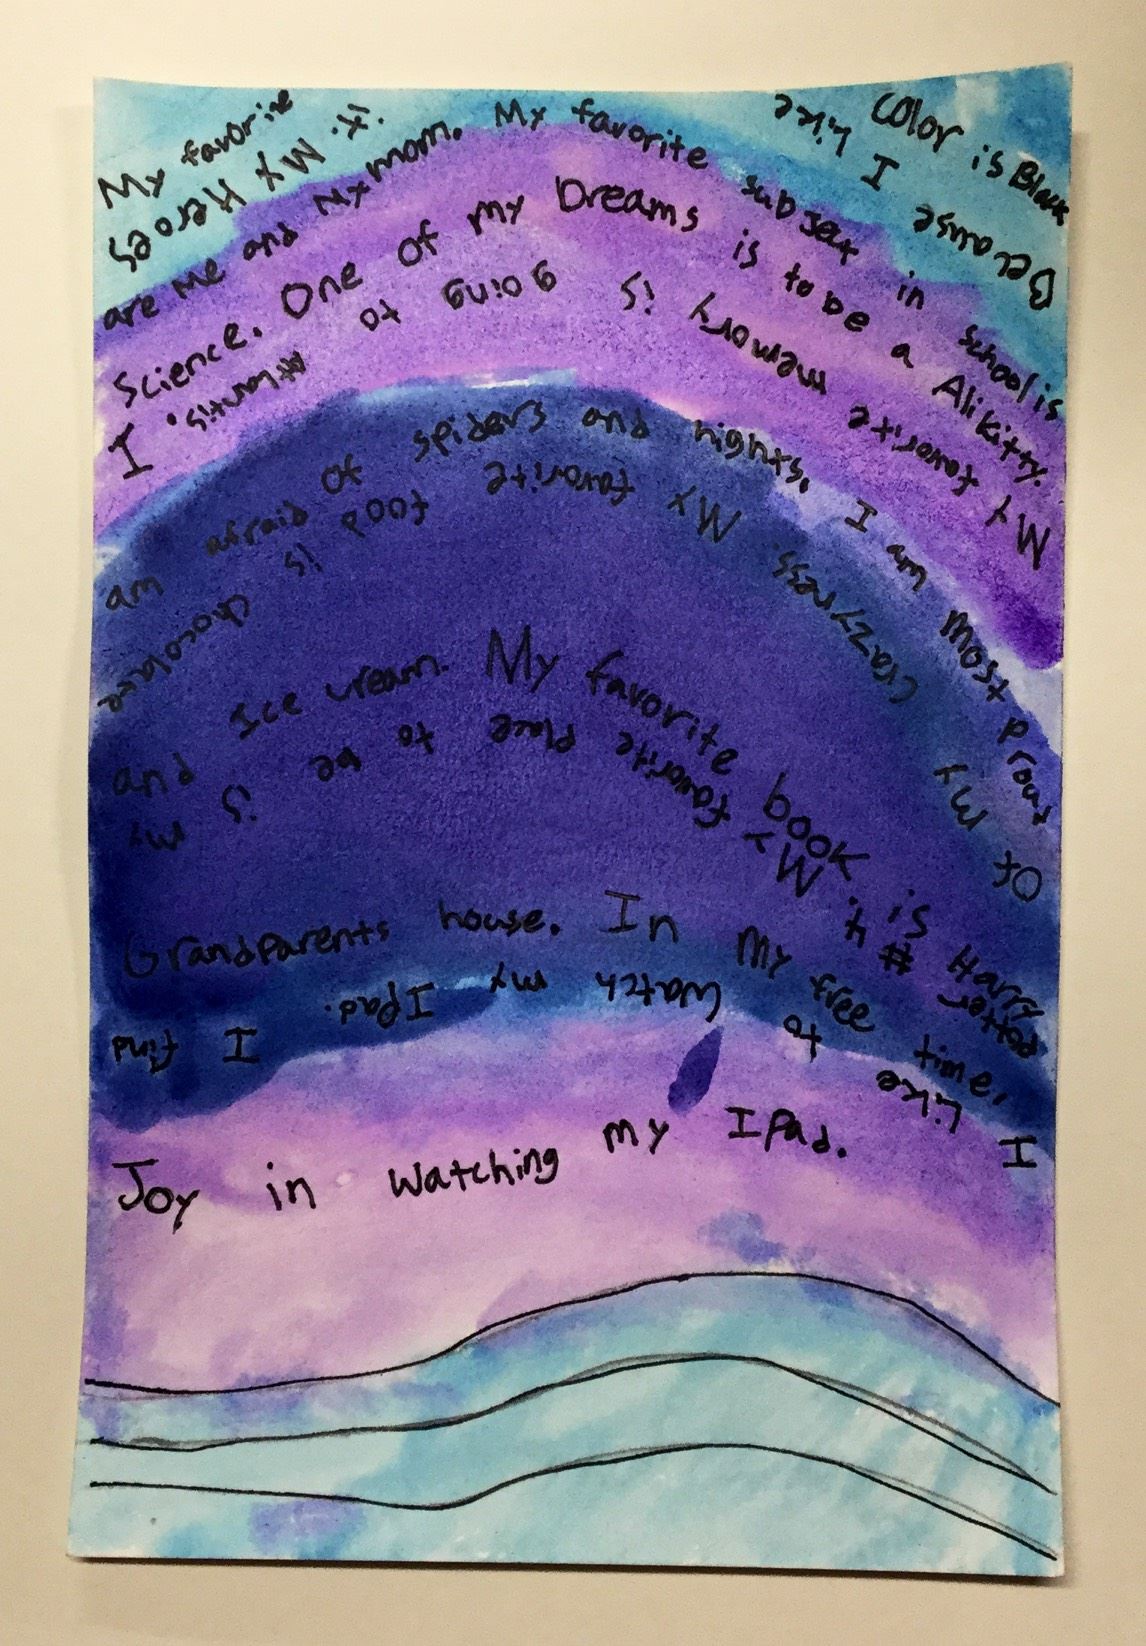 My favorite color is Black
Because I like it. My Heroes
are me and My mom. My favorite subject in school is
Science. One of my Dreams is to be a Alikitty.
My favorite memory is going to Atlantis. I
am afraid of spiders and hights. I am most proud
Of my crazzyness. My favorite food is chocolate
and Ice cream. My favorite book is Harry
Potter #4. My favorite place to be is my
Grandparents house. In my free time,
I Like to watch my IPad. I find
Joy in watching my IPad.